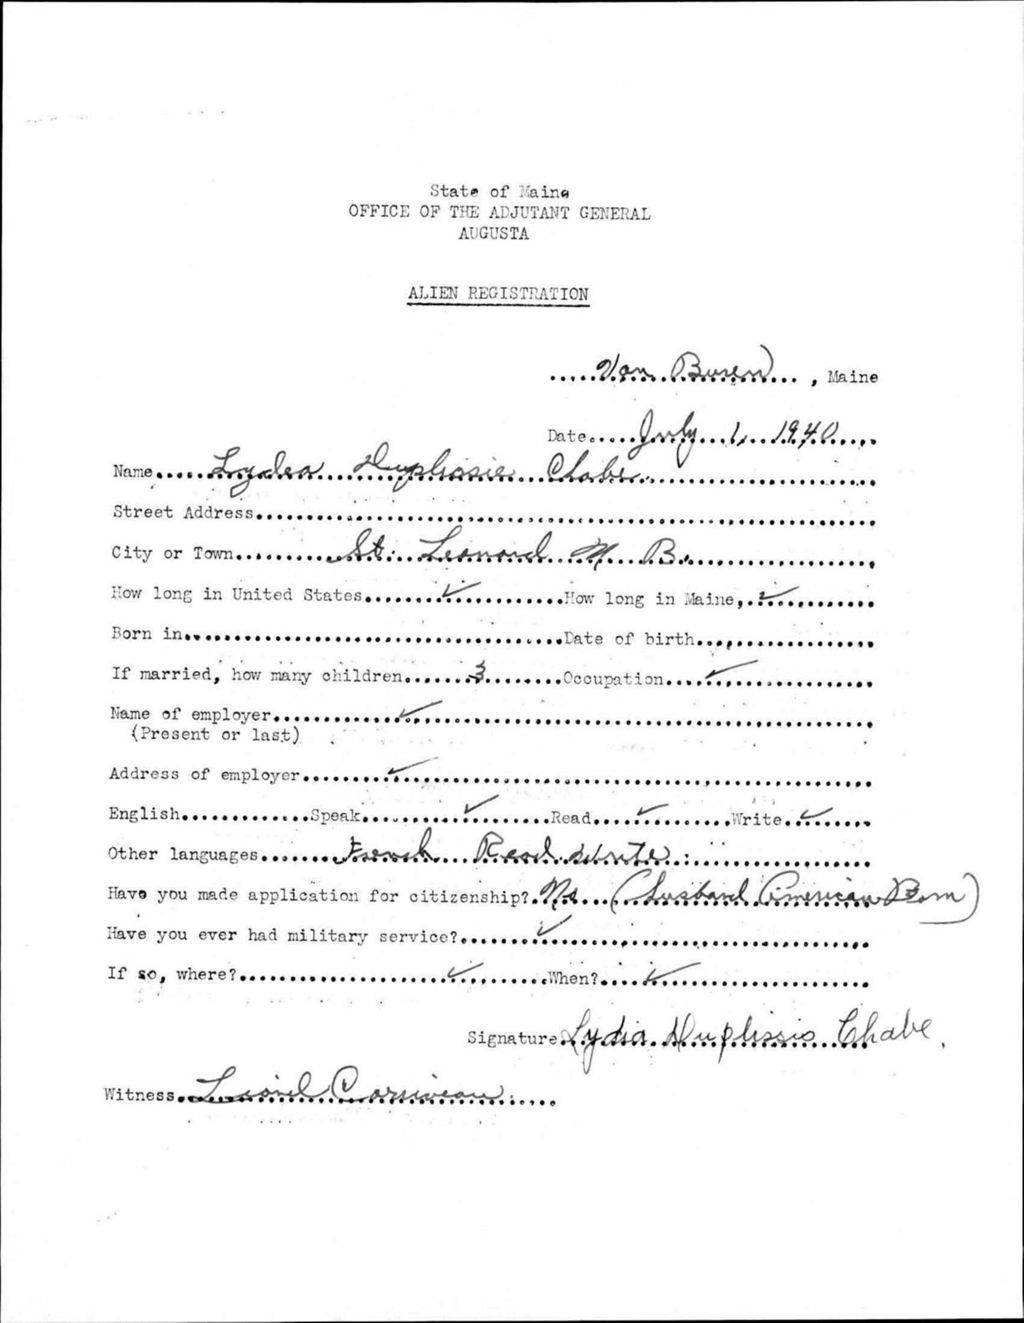 State of Maine
OFFICE OF THE ADJUTANT GENERAL
AUGUSTA
ALIEN REGISTRATION
Van Buren, Maine
Date July 1, 1940
Name Lydea Chabe
Street Address
City or Town St. Leonard N. B.
How long in United States ✓ How long in Maine, ✓
Born in Date of birth
If married, how many children 3 Occupation ✓
Name of employer ✓
(Present or last)
Address of employer ✓
English Speak ✓ Read ✓ Write ✓
Other languages French Read Write
Have you made application for citizenship? No (husband American Born)
Have you ever had military service? ✓
If so, where? ✓ When? ✓
Signature Lydia Duplissis Chabe.
Witness Lionel Corriveau